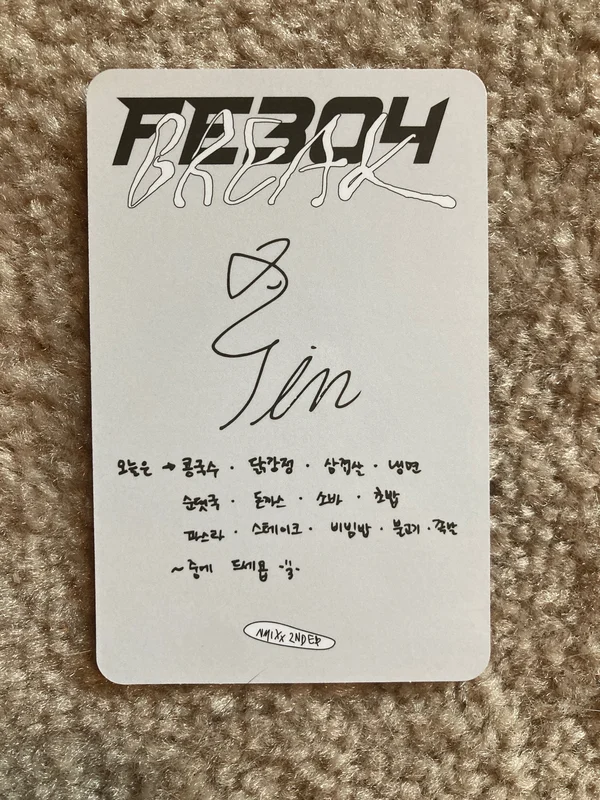 FE3O4
BREAK
오늘은 → 콩국수 · 닭강정 · 삼겹살 · 냉면
순댓국 · 돈까스 · 소바 · 초밥
파스타 · 스테이크 · 비빔밥 · 불고기 · 족발
~ 중에 드세욥
NMIXX 2ND EP